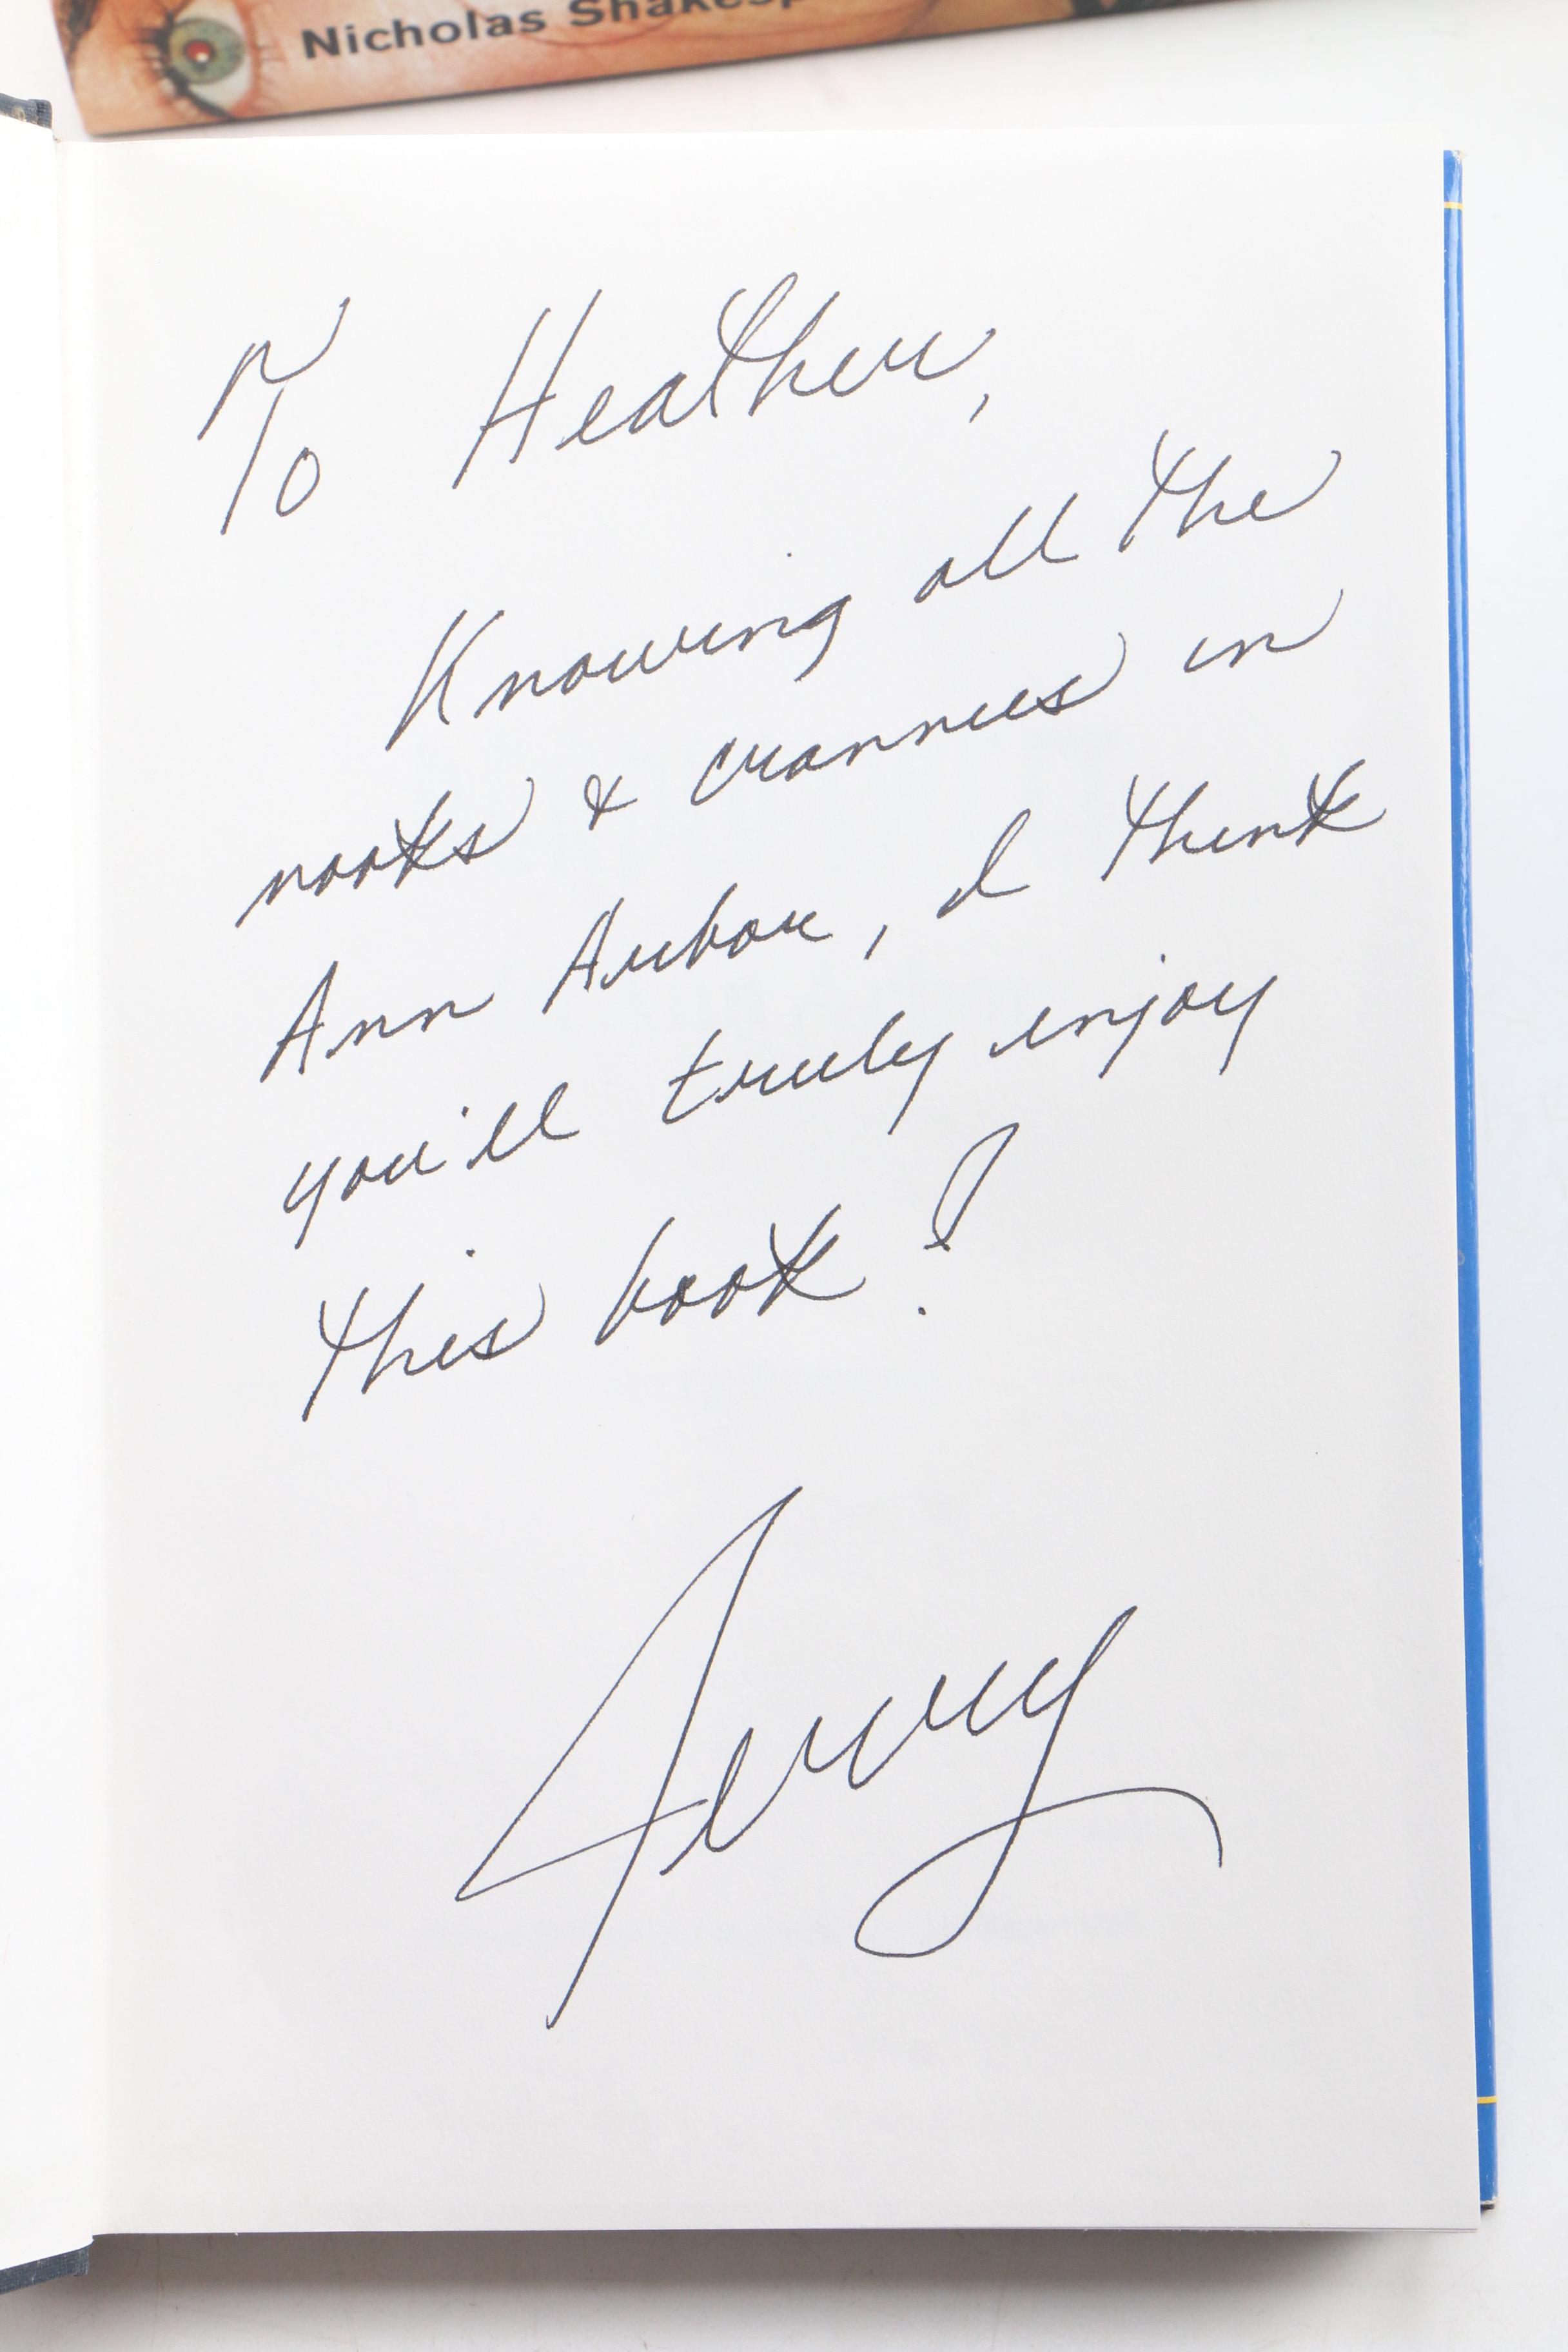 Nicholas Shakesp
To Heather,
Knowing all the
nooks & crannies in
Ann Arbor, I think
you'll truly enjoy
this book!
Jerry